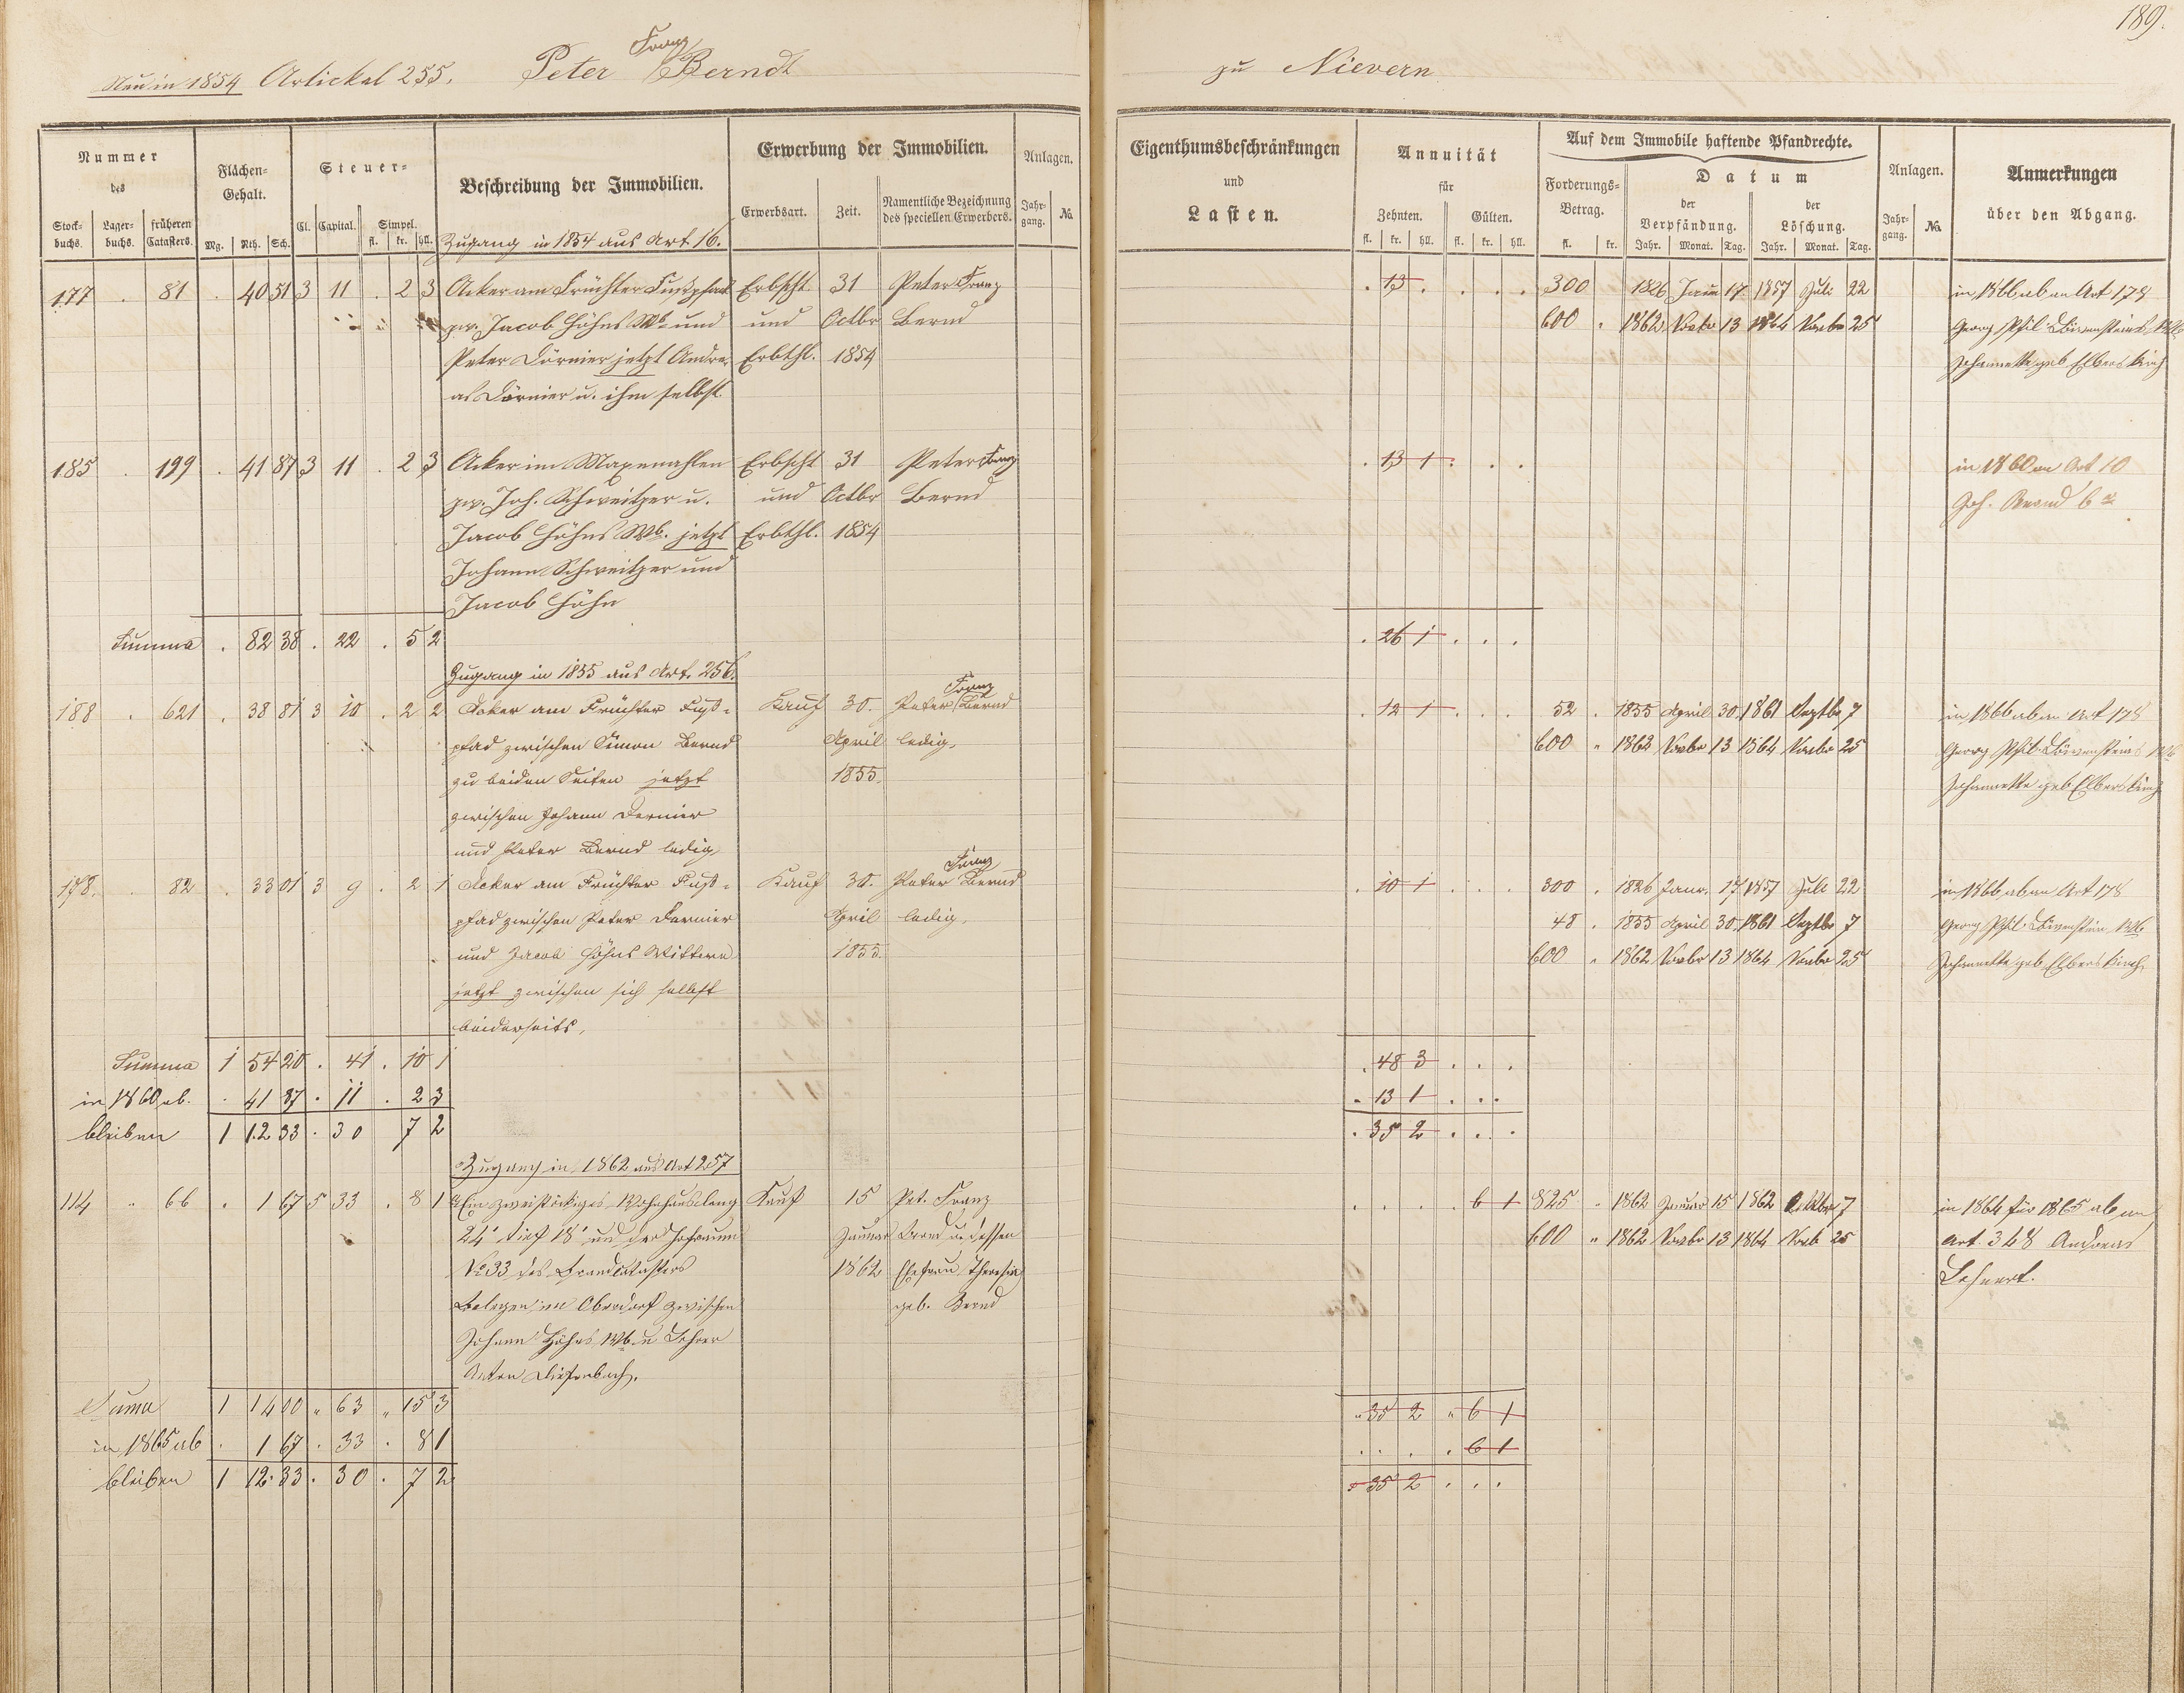 189.
Neu in 1854 Artickel 255. Peter Franz Berndt zu Nievern
Nummer des
Stockbuchs. Lagerbuchs. früheren Catasters.
Flächen-Gehalt.
Mg. Rth. Sch.
Steuer-
Cl. Capital. Simpel.
fl. kr. hll.
Beschreibung der Immobilien.
Erwerbung der Immobilien.
Erwerbsart. Zeit. Namentliche Bezeichnung des speciellen Erwerbers.
Anlagen.
Jahrgang. No.
Eigenthumsbeschränkungen
und
Lasten.
Annuität
für
Zehnten. Gülten.
fl. kr. hll. fl. kr. hll.
Auf dem Immobile haftende Pfandrechte.
Forderungs-Betrag.
fl. kr.
Datum
der Verpfändung. der Löschung.
Jahr. Monat. Tag. Jahr. Monat. Tag.
Anlagen.
Jahrgang. No.
Anmerkungen
über den Abgang.
Zugang in 1854 aus Art. 16.
177 . 81 . 40 51 3 11 . 2 3 Acker am Früchter Fußpfad Erbscht 31 Peter Franz . 13 . . . . 300 1826 Janu 17 1857 Juli 22 in 1866 ab an Art 178
zw. Jacob Höhns Wb und und Octbr Bernd 600 . 1862 Novbr 13 1864 Novbr 25 Georg Phil. Löwensteins Wb
Peter Dörnier jetzt Andre- Erbthl. 1854 Johannette geb Elberskirch
as Dörnier u. ihm selbst.
185 . 199 . 41 87 3 11 . 2 3 Acker im Maxenahlen Erbscht 31 Peter Franz . 13 1 . . . in 1860 an Art 10
zw. Joh. Schweitzer u. und Octbr Bernd Joh. Bernd 6r
Jacob Höhns Wb. jetzt Erbthl. 1854
Johann Schweitzer und
Jacob Höhn
Summa . 82 38 . 22 . 5 2 . 26 1 . . .
Zugang in 1855 aus Art. 256.
188 . 621 . 38 81 3 10 . 2 2 Acker am Früchter Fuß- Kauf 30. Peter Franz Bernd . 12 1 . . . 52 . 1855 April 30. 1861 Septbr 7 in 1866 ab an Art 178
pfad zwischen Simon Bernd April ledig. 600 " 1862 Novbr 13 1864 Novbr 25 Georg Phil. Löwensteins Wb
zu beiden Seiten jetzt 1855. Johannette geb. Elberskirch
zwischen Johann Dernier
und Peter Bernd ledig
178. . 82 . 33 01 3 9 . 2 1 Acker am Früchter Fuß- Kauf 30. Peter Franz Bernd . 10 1 . . . 300 . 1826 Janr. 17 1857 Juli 22 in 1866 ab an Art 178
pfad zwischen Peter Dernier April ledig. 48 . 1855 April 30. 1861 Septbr 7 Georg Phil. Löwenstein Wb
und Jacob Höhns Wittwe 1855. 600 " 1862 Novbr 13 1864 Novbr 25 Johannette geb Elberskirch
jetzt zwischen sich selbst
beiderseits.
Summa 1 54 20 . 41 . 10 1 . 48 3 . . .
in 1860 ab. . 41 87 . 11 . 2 3 . 13 1 . . .
bleiben 1 12 33 . 30 7 2 . 35 2 . . .
Zugang in 1862 aus Art 257
114 " 66 . 1 67 5 33 . 8 1 Ein zweistöckiges Wohnhaus lang Kauf 15 Pet. Franz . . . . 6 1 825 " 1862 Januar 15 1862 Octbr 7 in 1864 für 1865 ab an
24' tief 18' und der Hofraum Januar Bernd u. dessen 600 " 1862 Novbr 13 1864 Novb 25 Art. 348 Andreas
No 33 des Brandcatasters 1862 Ehefrau Theresia Lehnert.
Belegen im Oberdorf zwischen geb. Bernd
Johann Höhns Wb. u Lehrer
Anton Diefenbach.
Suma 1 14 00 " 63 " 15 3 " 35 2 " 6 1
in 1865 ab . 1 67 . 33 . 8 1 . . . . 6 1
bleiben 1 12 33 . 30 . 7 2 . 35 2 . . .